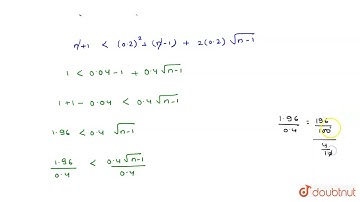 n+1 < (0.2)² + (n-1) + 2(0.2) √n-1
1 < 0.04-1 + 0.4√n-1
1+1-0.04 < 0.4√n-1
1.96 < 0.4 √n-1
1.96/0.4 < 0.4√n-1/0.4
1.96/0.4 = 196/100 / 4/10
doubtnut